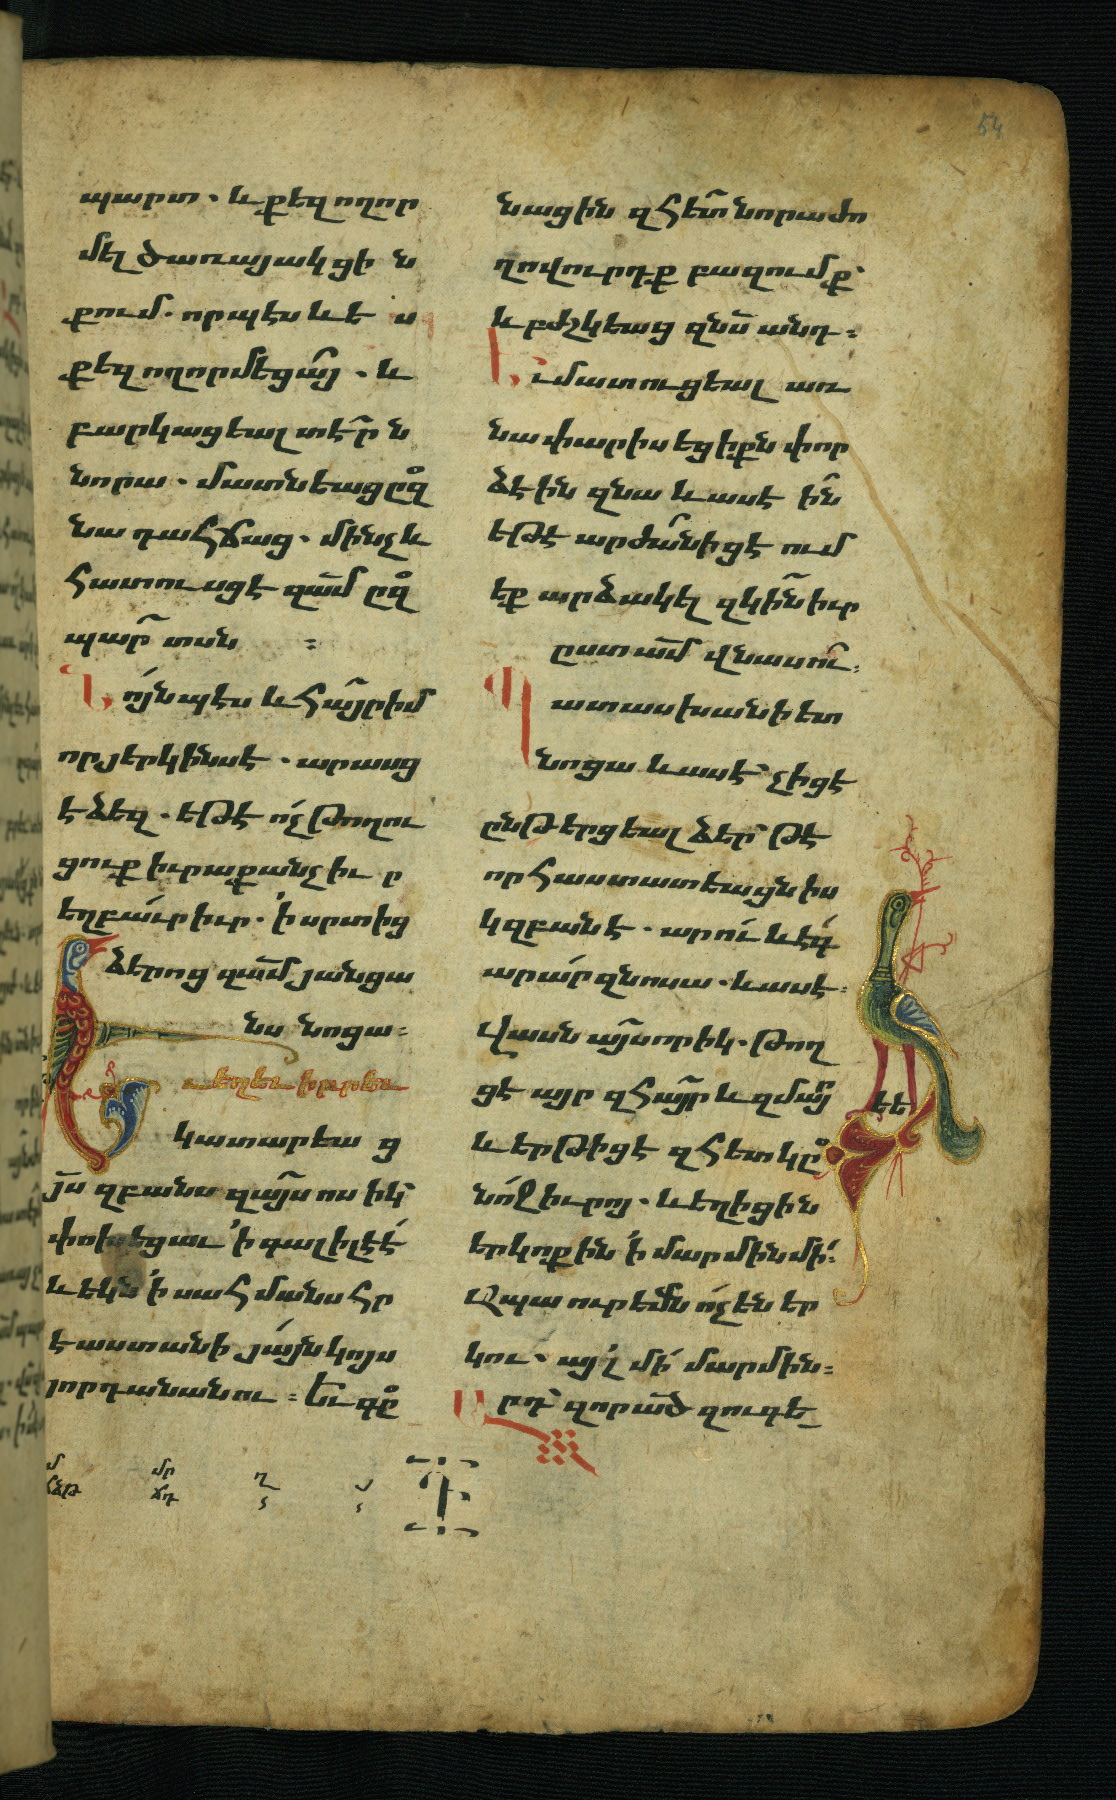 54
պարտ · և քեզ ողոր
մել ծառայակցի ն
քում · որպէս և ե ս
քեզ ողորմեցա՜յ · և
բարկացեալ տէ՜ր ն
նորա · մատնեաց ըզ՞
նա դահճաց · մինչև
հատուսցէ զա՜մ ըզ՞
պար՜տսն ։
ո՛յնպէս և հա՜յր իմ
որ յերկինսէ · արասց
է ձեզ · եթէ ո՛չ թողու
ցուք իւրաքանչիւ ր
եղբա՛ւր իւր · ՚ի սրտից
ձերոց զա՜մ յանցա
նս նոցա ։
Եւ եղև իբրև
կատարեա ց
յ՜ս զբանս զա՜յսոսիկ՝
փոխեցաւ ՚ի գալիլեէ՛
և եկն ՚ի սահմանս հր
էաստանի յա՛յնկոյս
յորդանանու ։ Եւ գը՞
նացին զհե՜տ նորա ժո
ղովուրդք բազումք՝
և բժշկեաց զնս՜ անդ ։
Եւ մատուցեալ առ
նա փարիսեցիքն փոր
ձէին զնա և ասէ ի՜ն
եթէ արժա՜ն իցէ ում
եք արձակել զկի՜ն իւր
ըստ ա՜մ վնասու՜ ։
Պատասխանի ետ
նոցա և ասէ՝ չիցէ
ընթերցեալ ձեր՝ թէ
որ հաստատեացն իս
կզբանէ · արու՛ և էգ՛
արա՛ր զնոսա · և ասէ ։
Վասն ա՜յսորիկ · թող
ցէ այր զհա՜յր և զմա՜յր
և երթիցէ զհետ կը՞
նո՛ջ իւրոյ · և եղիցին
երկոքին ՚ի մարմին մի՛ ։
Ապա ուրեմ՜ն ո՛չ են եր
կու · այ՛լ մի՛ մարմին ։
րդ՝ զոր ա՜ծ զուգե
եե
մ
ճձթ
մր
ճդ